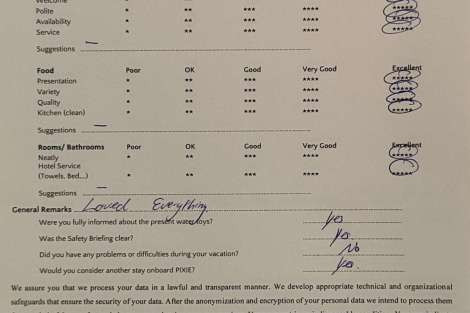 Welcome
Polite * ** *** **** *****
Availability * ** *** **** *****
Service * ** *** **** *****
Suggestions —
Food Poor OK Good Very Good Excellent
Presentation * ** *** **** *****
Variety * ** *** **** *****
Quality * ** *** **** *****
Kitchen (clean) * ** *** **** *****
Suggestions —
Rooms/ Bathrooms Poor OK Good Very Good Excellent
Neatly * ** *** **** *****
Hotel Service
(Towels, Bed...) * ** *** **** *****
Suggestions —
General Remarks Loved Everything
Were you fully informed about the present watertoys? yes
Was the Safety Briefing clear? yes
Did you have any problems or difficulties during your vacation? No
Would you consider another stay onboard PIXIE? yes.
We assure you that we process your data in a lawful and transparent manner. We develop appropriate technical and organizational
safeguards that ensure the security of your data. After the anonymization and encryption of your personal data we intend to process them